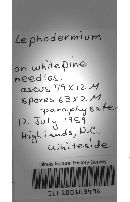 Lephodermium
on white pine
needles.
ascus 79 X 12 M
spores 63 X 2 M
paraphysate.
12 July 1959
Highlands, N.C.
Whiteside
Illinois Natural History Survey